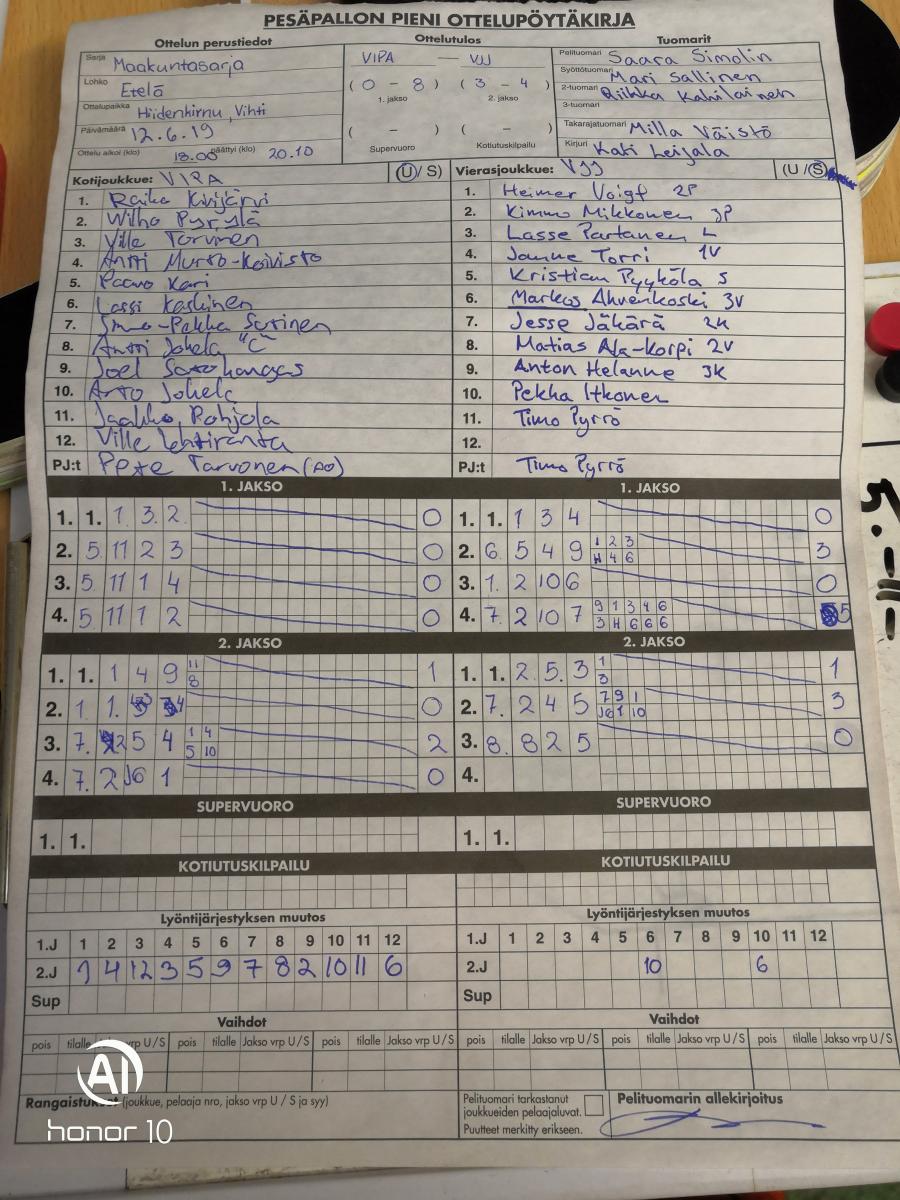 PESÄPALLON PIENI OTTELUPÖYTÄKIRJA
Ottelun perustiedot
Sarja Maakuntasarja
Lohko Etelä
Ottelupaikka Hiidenkirnu, Vihti
Päivämäärä 12.6.19
Ottelu alkoi (klo) 18.00 päättyi (klo) 20.10
Ottelutulos
VIPA — VJJ
(0 - 8) (3 - 4)
1. jakso 2. jakso
( - ) ( - )
Supervuoro Kotiutuskilpailu
Tuomarit
Pelituomari Saara Simolin
Syöttötuomari Mari Sallinen
2-tuomari Riikka Kahilainen
3-tuomari
Takarajatuomari Milla Väistö
Kirjuri Kati Leijala
Kotijoukkue: VIPA (U / S)
1. Raika Kivijärvi
2. Wilho Pyrylä
3. Ville Torvinen
4. Antti Murto-Koivisto
5. Paavo Kari
6. Lassi Keskinen
7. Simo-Pekka Sorinen
8. Antti Jokela "C"
9. Joel
10. Arto Jokela
11. Jaakko Pohjola
12. Ville Lehtiranta
PJ:t Pete Tarvonen
Vierasjoukkue: VJJ (U / S)
1. Heimer Voigt 2P
2. Kimmo Mikkonen 3P
3. Lasse Partanen L
4. Janne Torri 1V
5. Kristian Pyykölä S
6. Markos Ahvenkoski 3V
7. Jesse Jäkärä 2K
8. Matias Ala-Korpi 2V
9. Anton Helanne 3K
10. Pekka Itkonen
11. Timo Pyrrö
12.
PJ:t Timo Pyrrö
1. JAKSO
1. 1. 1 3 2 0
2. 5 11 2 3 0
3. 5 11 1 4 0
4. 5 11 1 2 0
1. JAKSO
1. 1. 1 3 4 0
2. 6 5 4 9 1 2 3 3
H 4 6
3. 1 2 10 6 0
4. 7 2 10 7 9 1 3 4 6 5
3 H 6 6 6
2. JAKSO
1. 1. 1 4 9 11 1
8
2. 1 1 0
3. 7 5 4 1 4 2
5 10
4. 7 2 J6 1 0
2. JAKSO
1. 1. 2 5 3 1 1
3
2. 7 2 4 5 7 9 1 3
J6 1 10
3. 8 8 2 5 0
4.
SUPERVUORO
1. 1.
SUPERVUORO
1. 1.
KOTIUTUSKILPAILU
KOTIUTUSKILPAILU
Lyöntijärjestyksen muutos
1.J 1 2 3 4 5 6 7 8 9 10 11 12
2.J 1 4 12 3 5 9 7 8 2 10 11 6
Sup
Lyöntijärjestyksen muutos
1.J 1 2 3 4 5 6 7 8 9 10 11 12
2.J 10 6
Sup
Vaihdot
pois tilalle vrp U / S pois tilalle Jakso vrp U / S pois tilalle Jakso vrp U / S
Vaihdot
pois tilalle Jakso vrp U / S pois tilalle Jakso vrp U / S pois tilalle Jakso vrp U / S
(joukkue, pelaaja nro, jakso vrp U / S ja syy)
Pelituomari tarkastanut
joukkueiden pelaajaluvat.
Puutteet merkitty erikseen.
Pelituomarin allekirjoitus
AI
honor 10